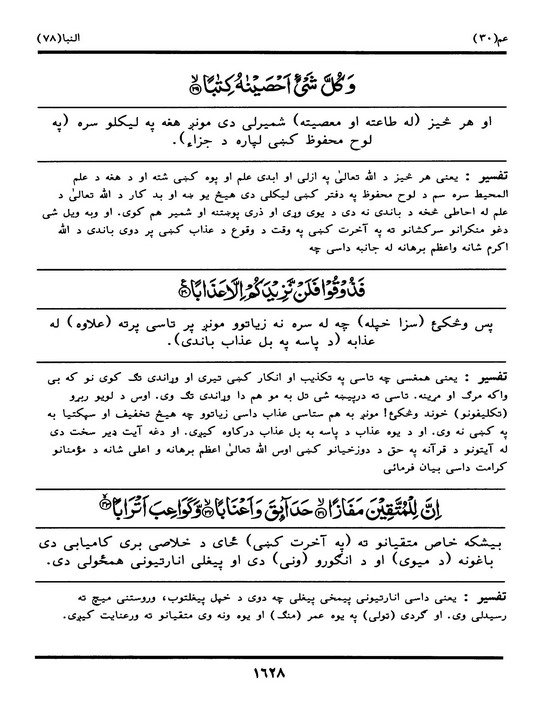 عم(۳۰) النبا(۷۸)
وَكُلَّ شَیْءٍ اَحْصَیْنٰهُ كِتٰبًا ۙ۲۹
او هر څیز (له طاعته او معصیته) شمیرلی دی مونږ هغه په لیکلو سره (په
لوح محفوظ کښی لپاره د جزاء).
تفسیر : یعنی هر څیز د الله تعالیٰ په ازلی او ابدی علم او پوه کښی شته او د هغه د علم
المحیط سره سم د لوح محفوظ په دفتر کښی لیکلی دی هیڅ یو ښه او بد کار د الله تعالیٰ د
علم له احاطی څخه د باندی نه دی د یوی وړی او ذری پوښتنه او شمیر هم کوی. او وبه ویل شی
دغو منکرانو سرکشانو ته په آخرت کښی په وقت د وقوع د عذاب کښی پر دوی باندی د الله
اکرم شانه واعظم برهانه له جانبه داسی چه
فَذُوْقُوْا فَلَنْ نَّزِیْدَكُمْ اِلَّا عَذَابًا ۳۰
پس وڅکئ (سزا خپله) چه له سره نه زیاتوو مونږ پر تاسی پرته (علاوه) له
عذابه (د پاسه په بل عذاب باندی).
تفسیر : یعنی همغسی چه تاسی په تکذیب او انکار کښی تیری او وړاندی تګ کوی نو که بی
واکه مرګ او مړینه. تاسی ته درپیښه شی تل به مو هم دا وړاندی تګ وی. اوس د لویو ربړو
(تکلیفونو) خوند وڅکئ! مونږ به هم ستاسی عذاب داسی زیاتوو چه هیڅ تخفیف او سپکتیا به
په کښی نه وی. او د یوه عذاب د پاسه به بل عذاب درکاوه کیږی. او دغه آیت ډیر سخت دی
له آیتونو د قرآنه په حق د دوزخیانو کښی اوس الله تعالیٰ اعظم برهانه و اعلی شانه د مؤمنانو
کرامت داسی بیان فرمائی
اِنَّ لِلْمُتَّقِیْنَ مَفَازًا ۙ۳۱ حَدَآىِٕقَ وَاَعْنَابًا ۙ۳۲ وَّكَوَاعِبَ اَتْرَابًا ۙ۳۳
بیشکه خاص متقیانو ته (په آخرت کښی) ځای د خلاصی بری کامیابی دی
باغونه (د میوی) او د انګورو (ونی) دی او پیغلی انارتیونی همځولی دی.
تفسیر : یعنی داسی انارتیونی پیمخی پیغلی چه دوی د خپل پیغلتوب، وروستنی میچ ته
رسیدلی وی. او گردی (تولی) په یوه عمر (منګ) او یوه ونه وی متقیانو ته ورعنایت کیږی.
۱۶۲۸